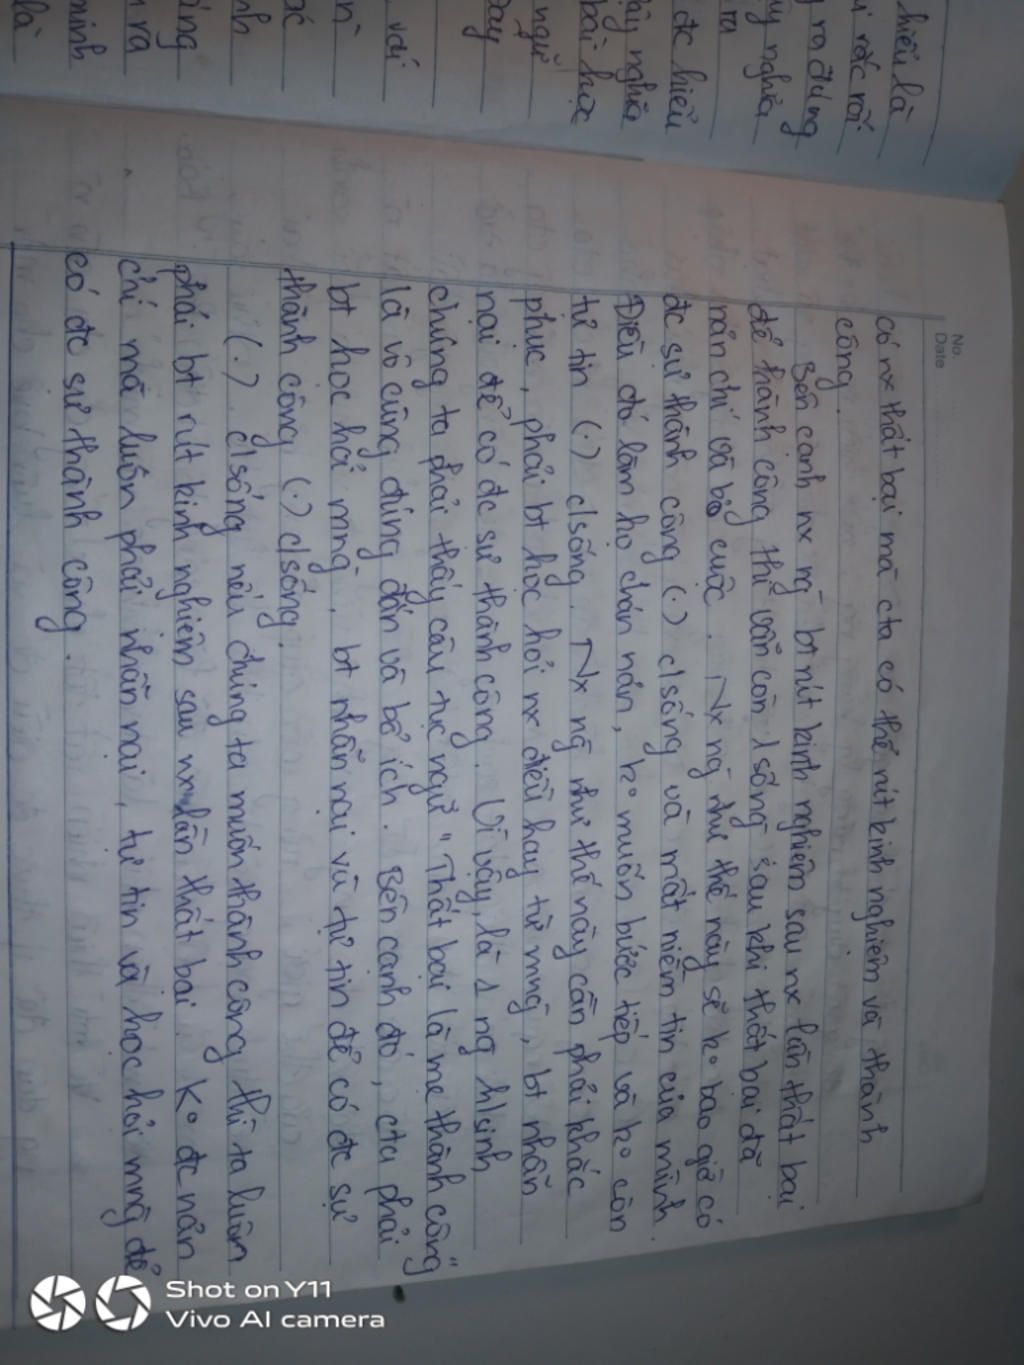 hiểu là
rắc rối
ra đúng
nghĩa
đc hiểu
nghĩa
bài học
ngữ
với
minh
là
No.
Date
có nx thất bại mà cta có thể rút kinh nghiệm và thành
công.
Bên cạnh nx ng bt rút kinh nghiệm sau nx lần thất bại
để thành công thì vẫn còn 1 số ng sau khi thất bại đã
nản chí và bỏ cuộc. Nx ng như thế này sẽ ko bao giờ có
đc sự thành công (.) c/sống và mất niềm tin của mình.
Điều đó làm họ chán nản, ko muốn bước tiếp và ko còn
tự tin (.) c/sống. Nx ng như thế này cần phải khắc
phục, phải bt học hỏi nx điều hay từ mng, bt nhẫn
nại để có đc sự thành công. Vì vậy, là 1 ng h/sinh
chúng ta phải thấy câu tục ngữ "Thất bại là mẹ thành công"
là vô cùng đúng đắn và bổ ích. Bên cạnh đó, cta phải
bt học hỏi mng, bt nhẫn nại và tự tin để có đc sự
thành công (.) c/sống.
(.) c/sống nếu chúng ta muốn thành công thì ta luôn
phải bt rút kinh nghiệm sau nx lần thất bại. Ko đc nản
chí mà luôn phải nhẫn nại, tự tin và học hỏi mng để
có đc sự thành công.
Shot on Y11
Vivo AI camera